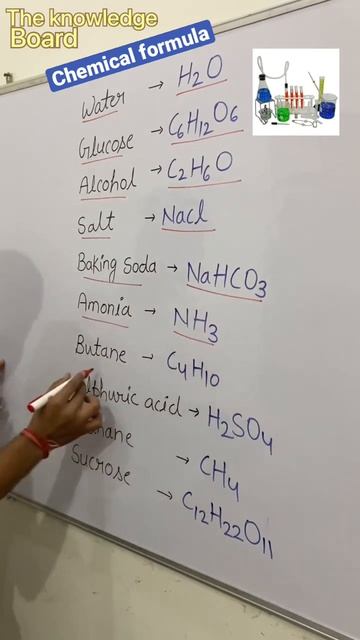 The knowledge
Board
Chemical formula
Water → H2O
Glucose → C6H12O6
Alcohol → C2H6O
Salt → Nacl
Baking Soda → NaHCO3
Amonia → NH3
Butane → C4H10
lthuric acid → H2SO4
hane → CH4
Sucrose → C12H22O11